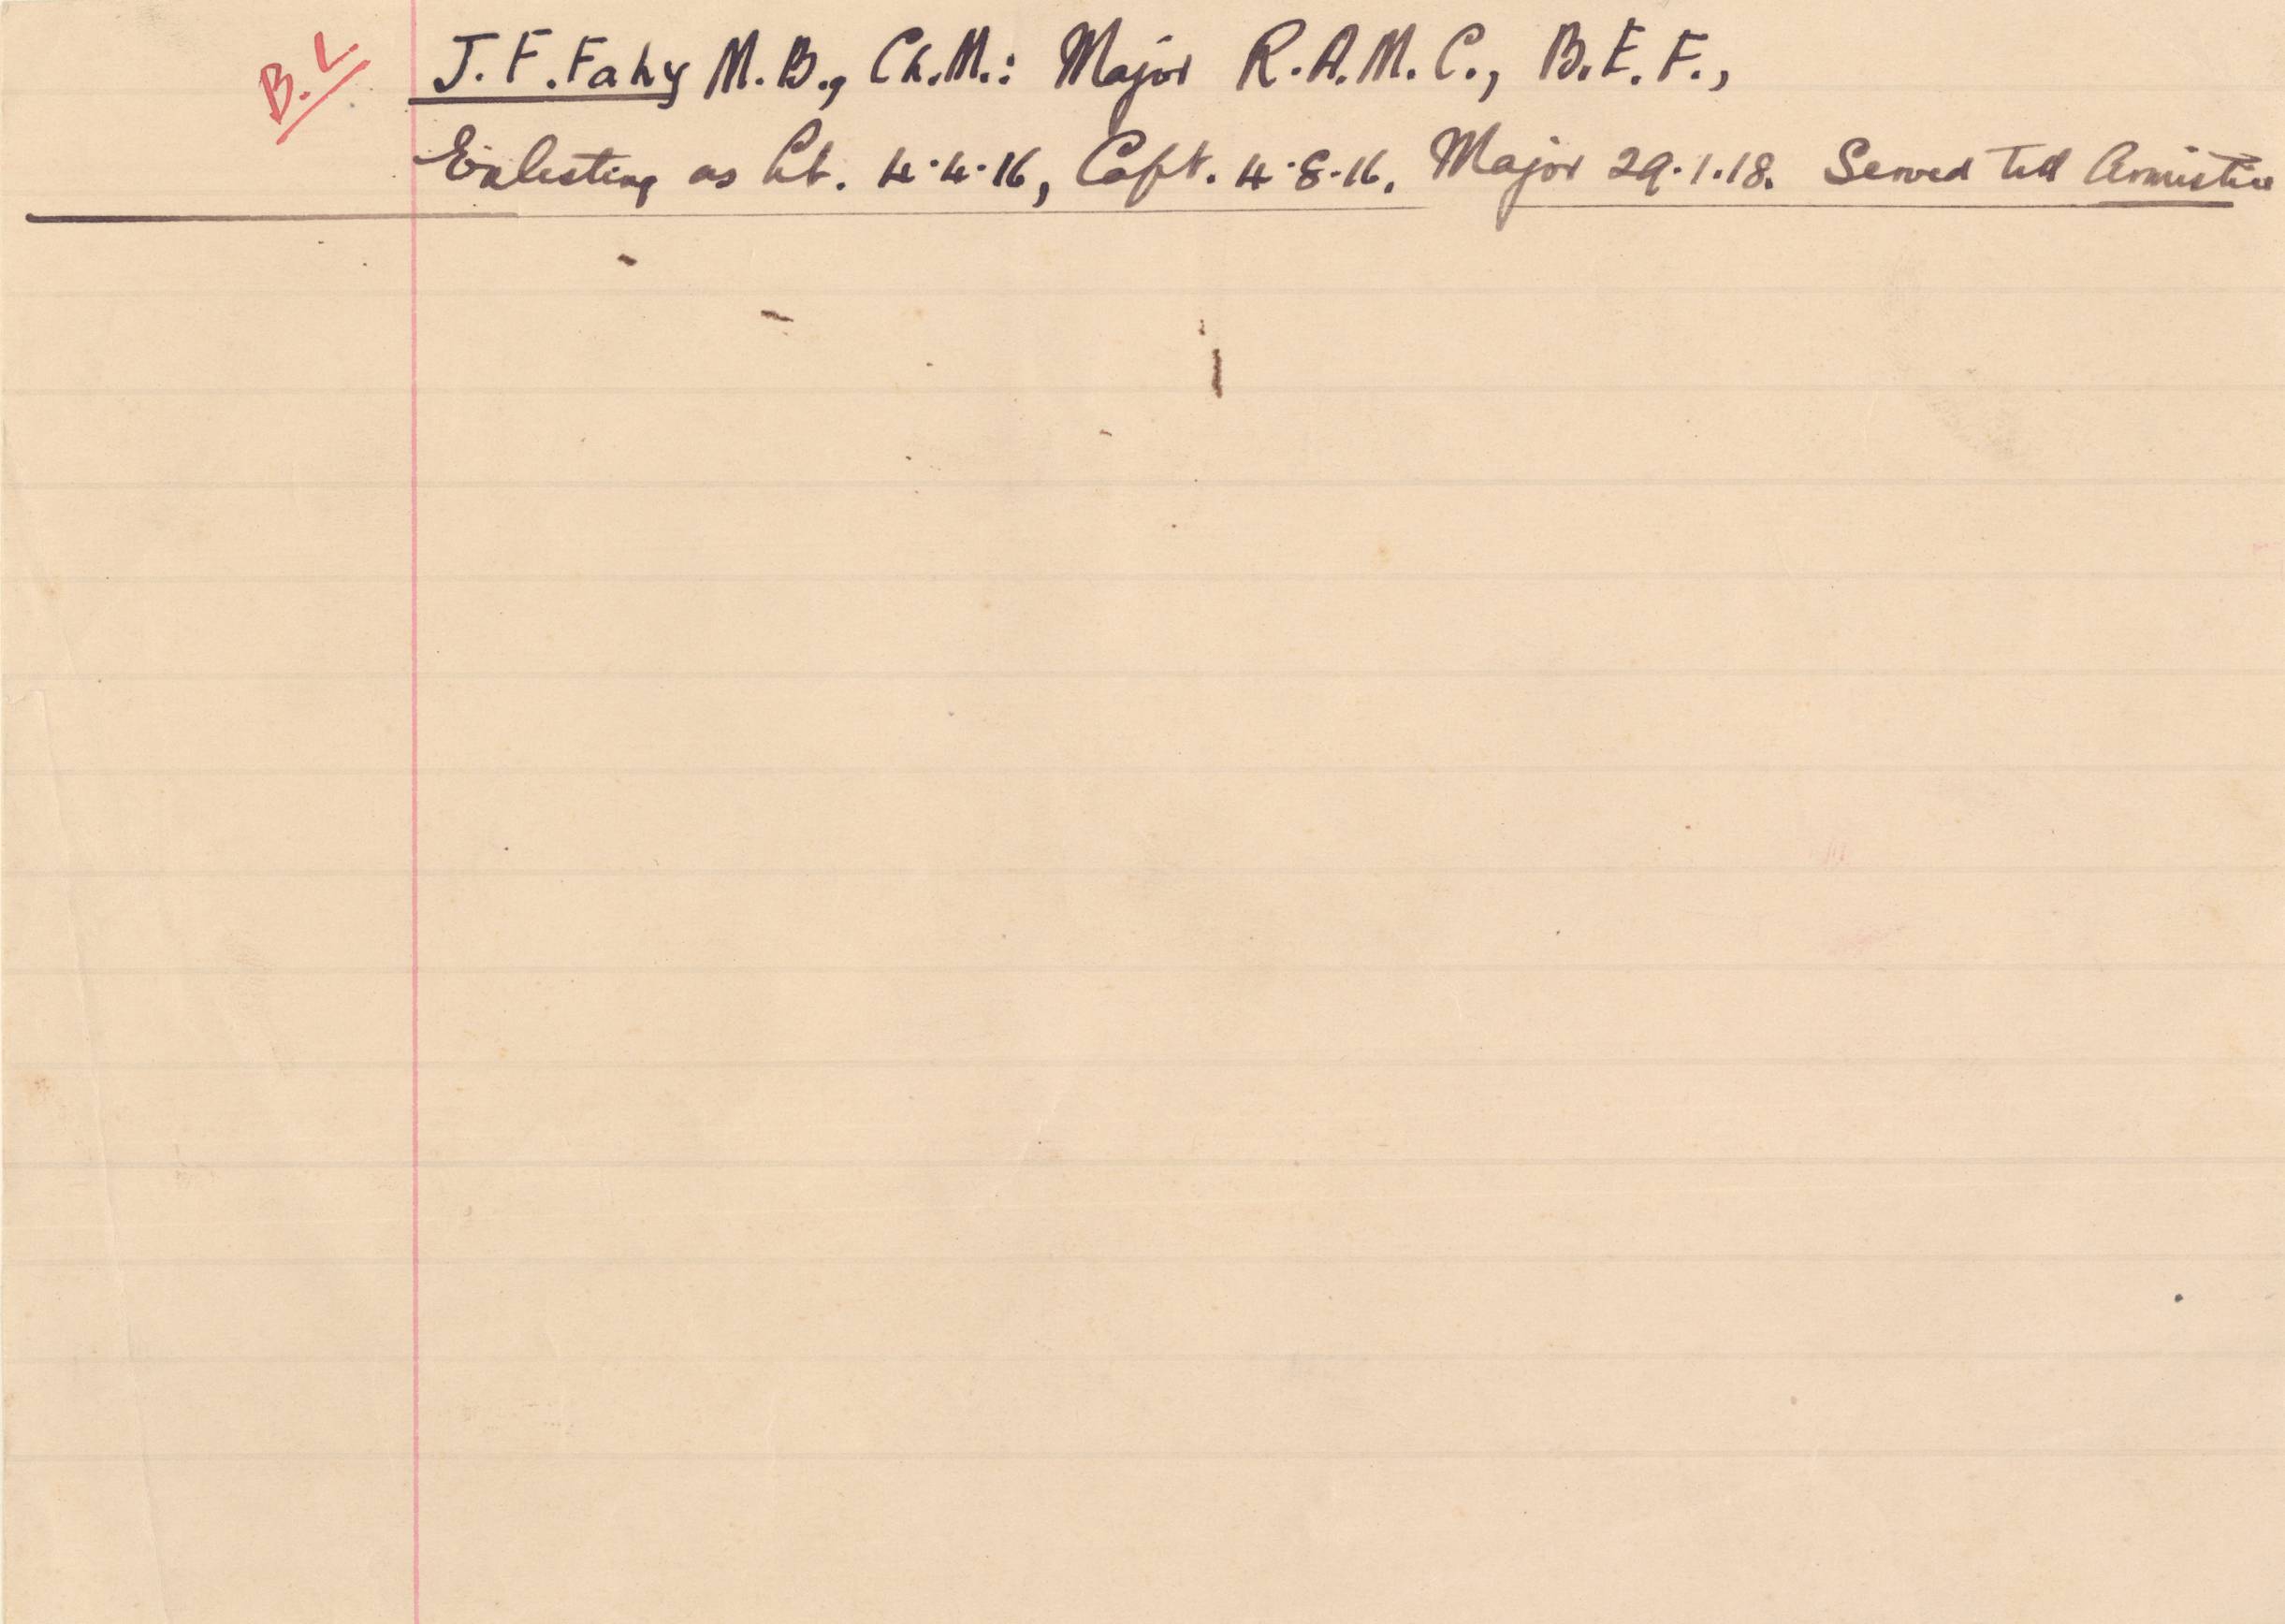 B.L
J. F. Fahy M.B., Ch.M.: Major R.A.M.C., B.E.F.,
Enlisting as Lt. 4·4·16, Capt. 4·8·16. Major 29·1·18. Served till Armistice